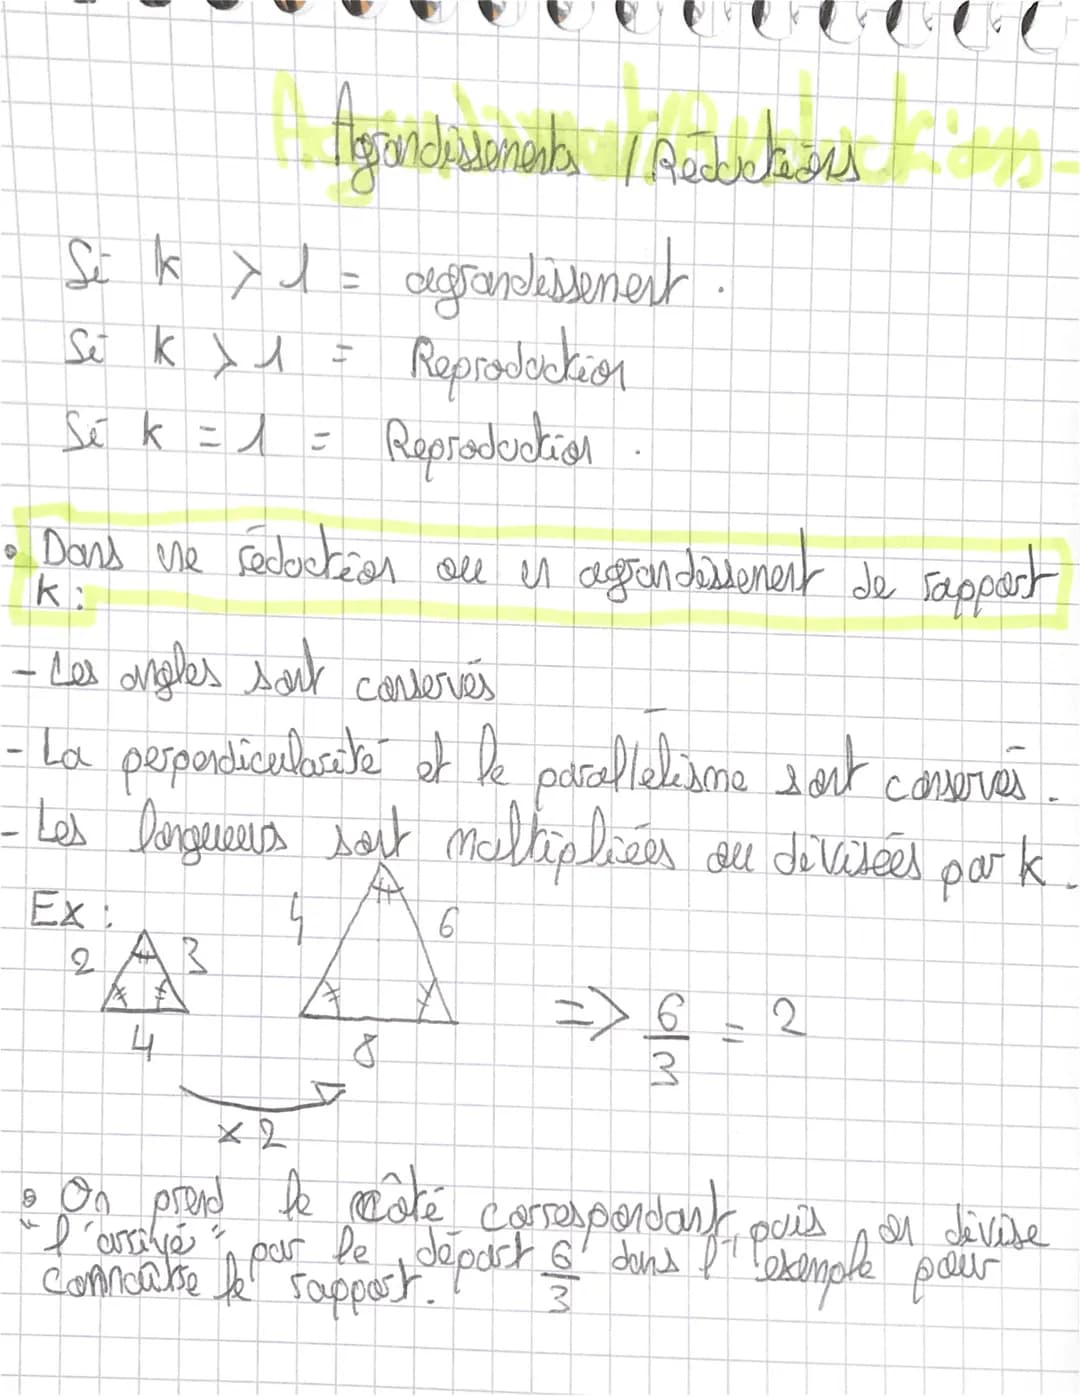 Agrandissements / Réductions
Si k > 1 = agrandissement.
Si k > 1 = Reproduction
Si k = 1 = Reproduction.
• Dans une réduction ou un agrandissement de rapport
k :
- Les angles sont conservés
- La perpendicularité et le parallélisme sont conservés.
- Les longueurs sont multipliées ou divisées par k.
Ex :
2 3 4
4 6 8
=> 6/3 = 2
x 2
• On prend le côté correspondant, puis on divise
"l'arrivé" par le départ 6/3 dans l'exemple pour
connaître le rapport.